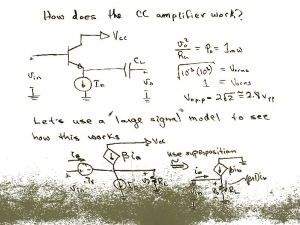 How does the CC amplifier work?
Vcc
CL
Vin
Io
Vo
Vo²/RL = Po = 1mW
√(10⁻³)(10³) = Vorms
1 = Vorms
Vop-p = 2√2 ≅ 2.8Vpp
Let's use a "large signal" model to see
how this works
Vcc
use superposition